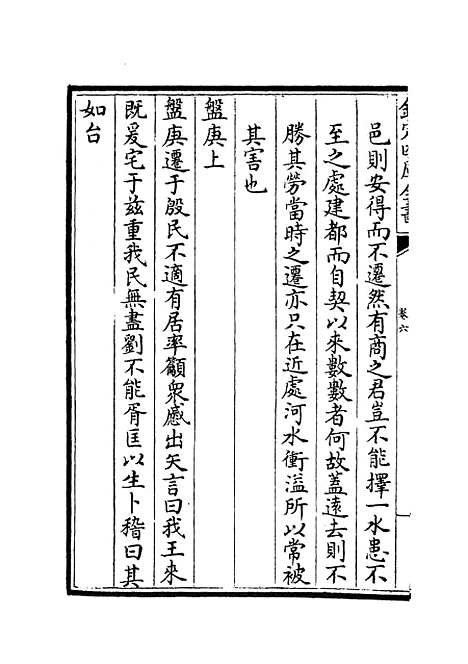 欽定四庫全書
卷六
邑則安得而不遷然有商之君豈不能擇一水患不
至之處建都而自契以來數數者何故蓋遠去則不
勝其勞當時之遷亦只在近處河水衝溢所以常被
其害也
盤庚上
盤庚遷于殷民不適有居率籲衆慼出矢言曰我王來
既爰宅于兹重我民無盡劉不能胥匡以生卜稽曰其
如台